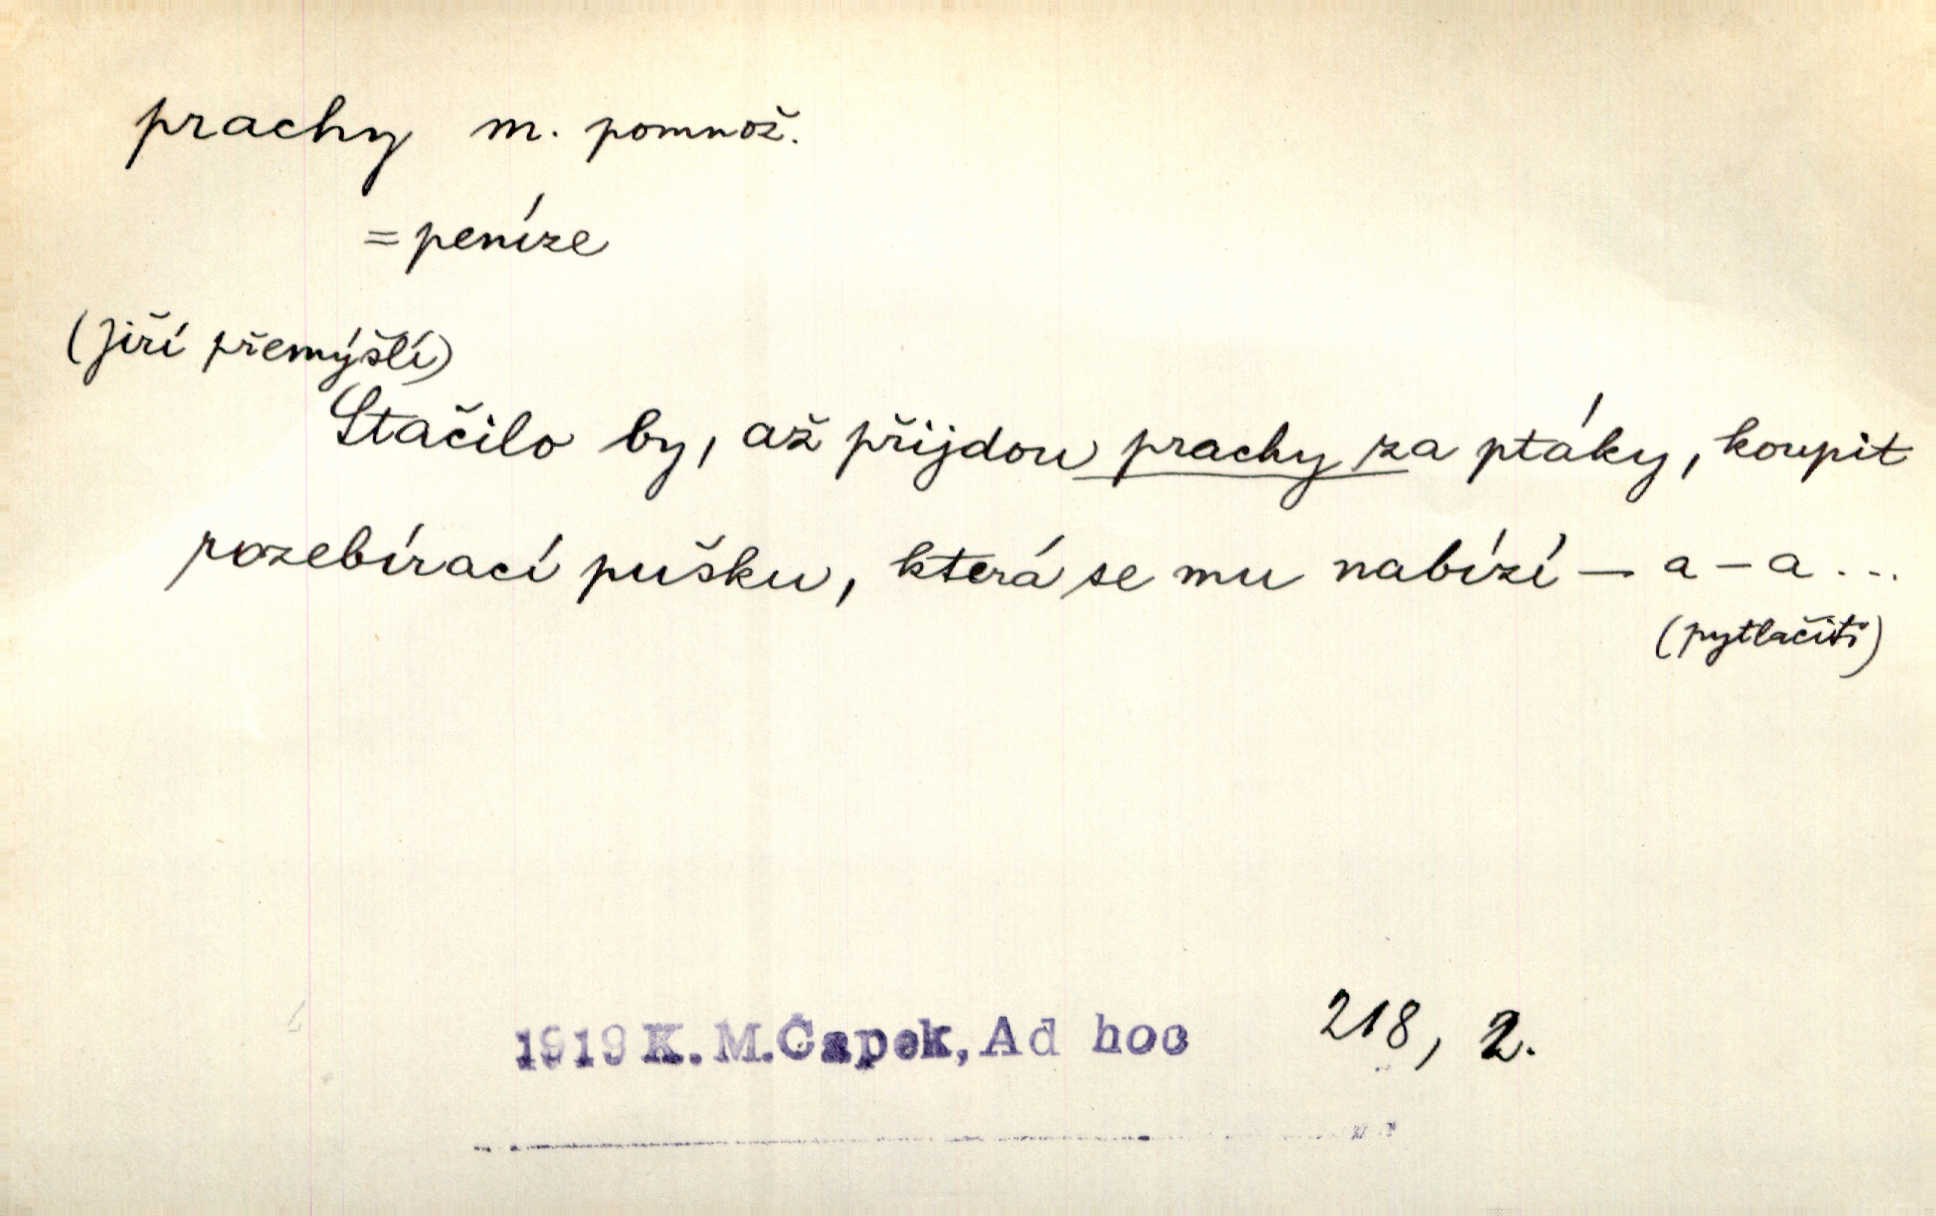 prachy m. pomnož.
= peníze
(Jiří přemýšlí)
Stačilo by, až přijdou prachy za ptáky, koupit
rozebírací pušku, která se mu nabízí — a – a ...
(pytlačiti)
1919 K. M. Čapek, Ad hoc 218, 2.